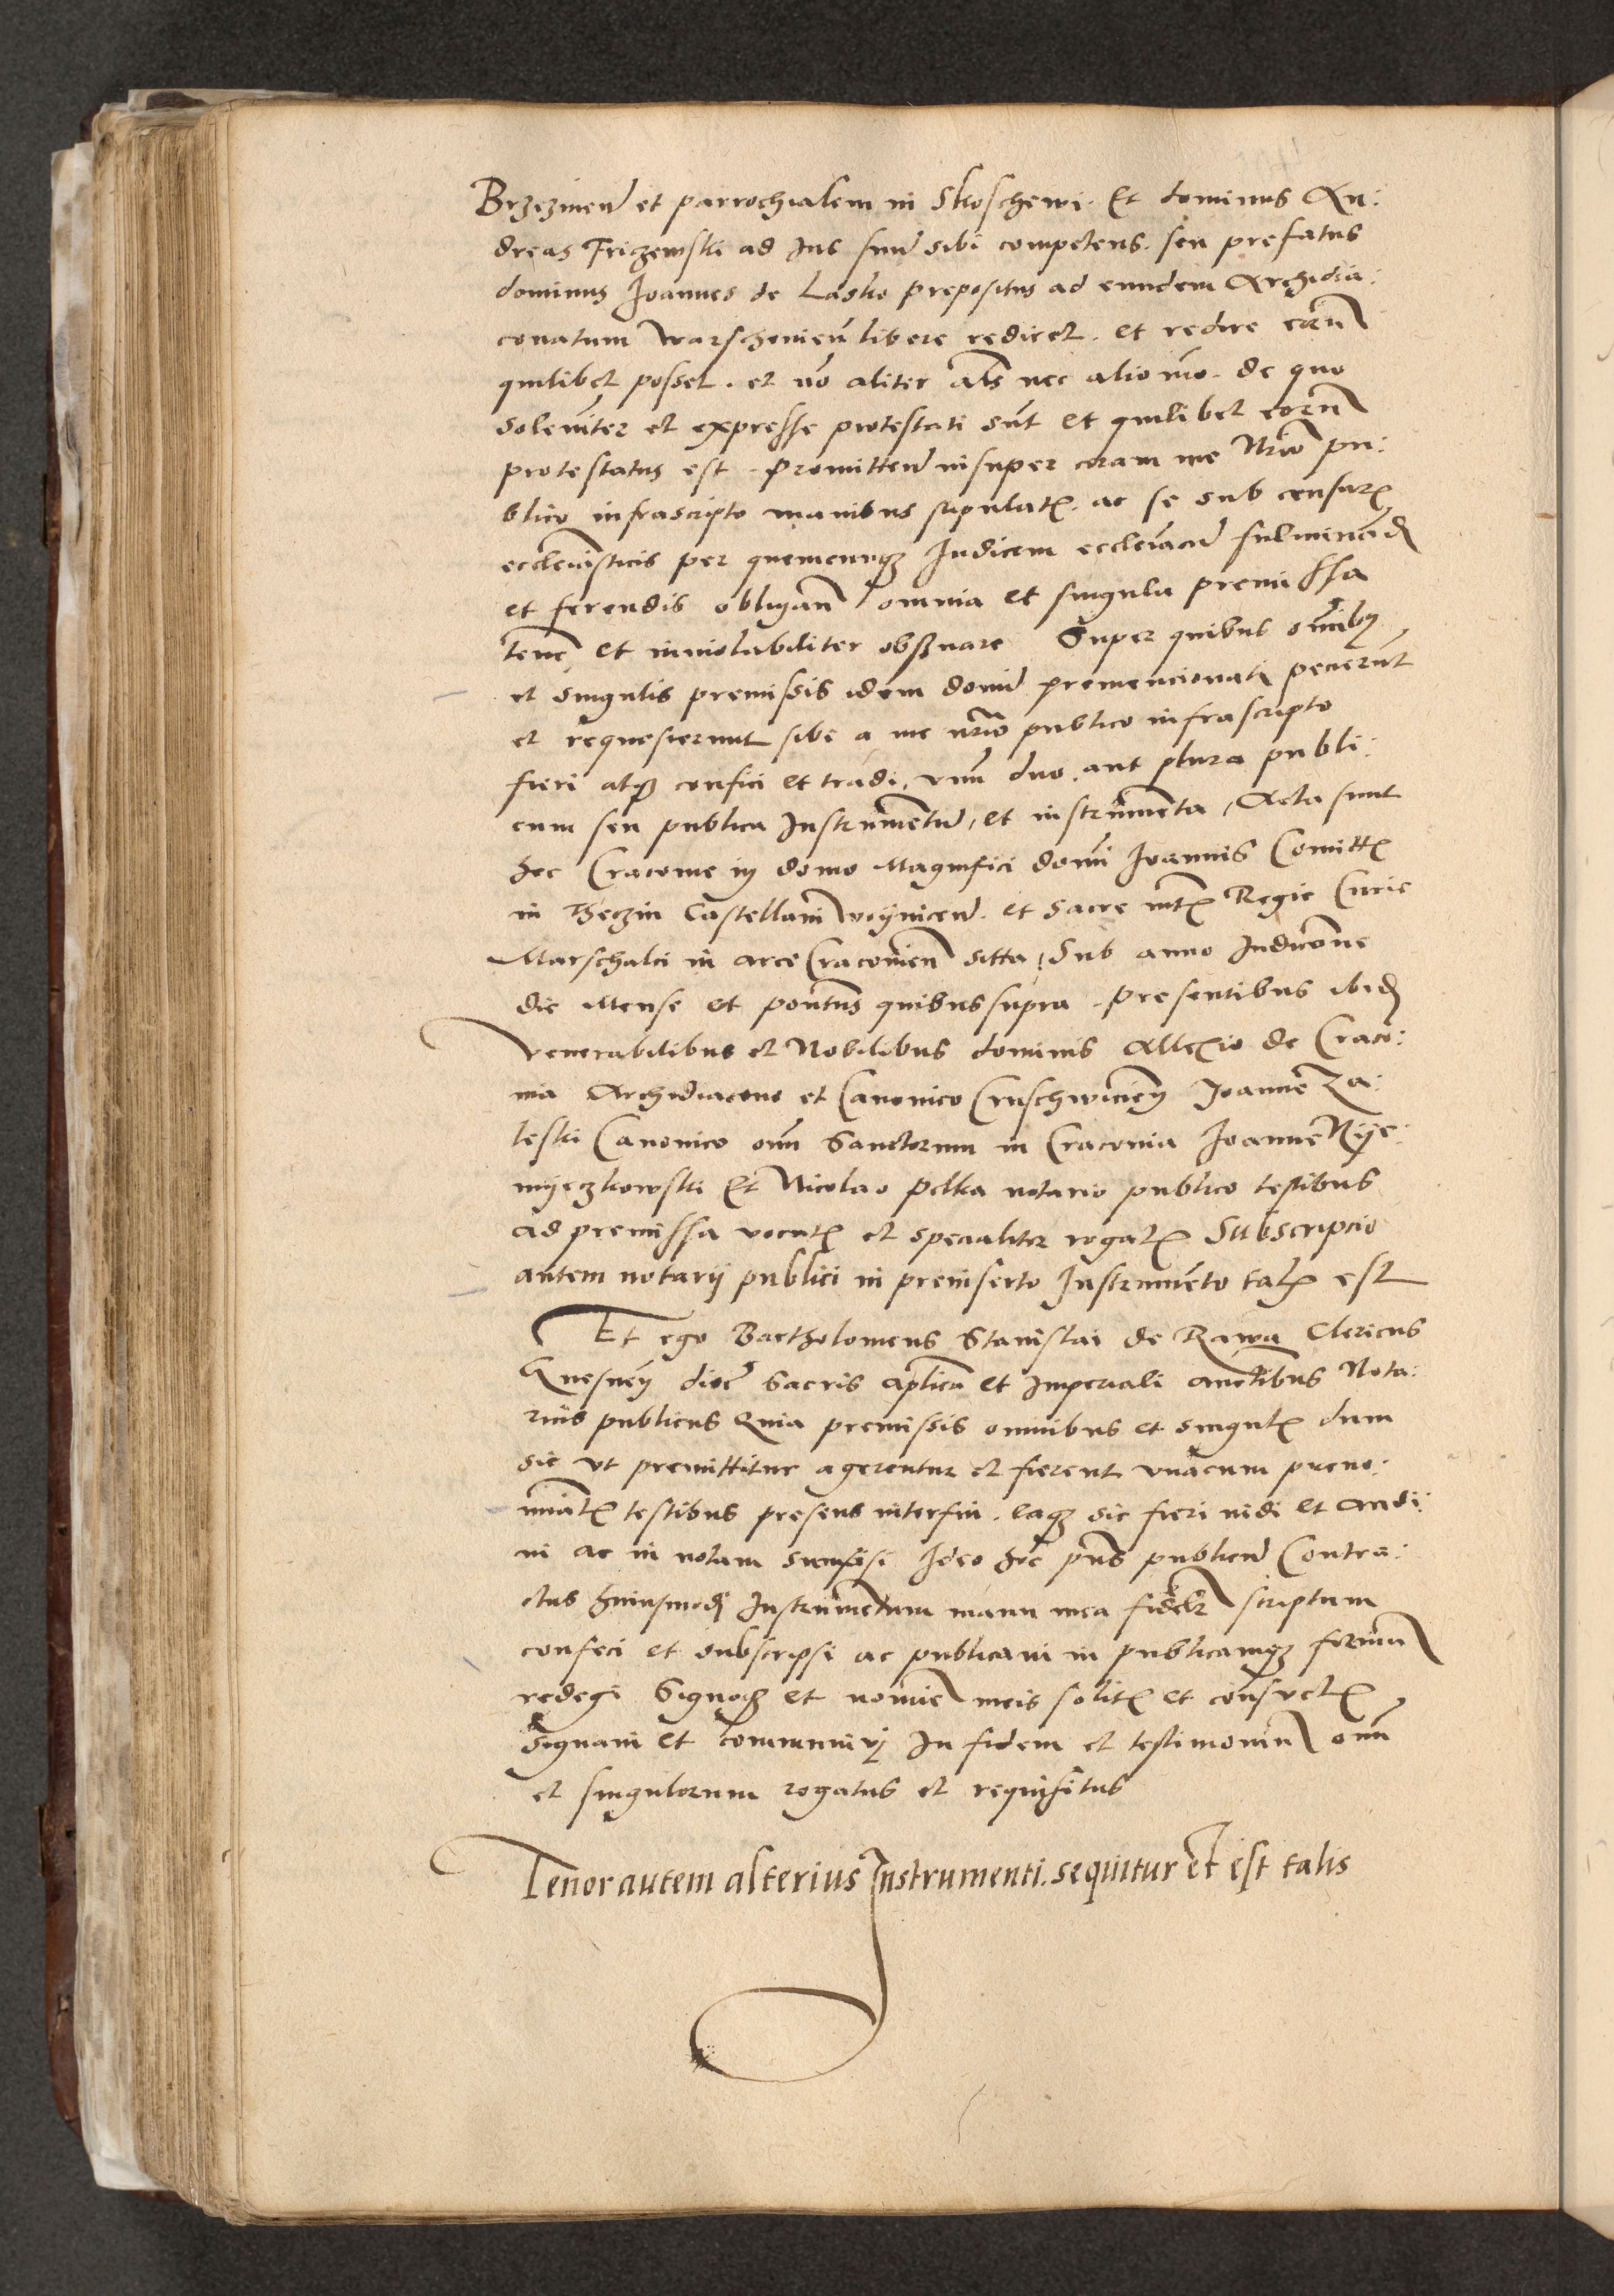 Brzezinen et parrochialem in Skoschewi. Et dominus An:
dreas Friczewski ad Ius suum sibi competens. seu prefatus
dominus Joannes de Lasko prepositus ad eundem Archidia:
conatum Warschouien libere rediret. et redire eorum
quilibet posset. et nō aliter als nec alio mō. de quo
solemniter et expresse protestati sūt et quilibet eorum
protestatus est. Promitten insuper coram me Nrio pu:
blico infrascripto manibus stipulatis. ac se sub censuris
ecclesiasticis per quemcunqz Iudicem ecclesiasticum fulminādis
et ferendis obligan omnia et singula premissa
tene et inuiolabiliter obseruare Super quibus omībus
et singulis premissis idem domini premencionati pecierūt
et requesierunt sibi a me nrio publico infrascripto
fieri atqz confici et tradi, vnū duo. aut plura publi:
cum seu publica Instrumentum, et instrumenta, Acta sunt
hec Cracouie in domo Magnifici domi Ioannis Comitis
in Theczin Castellani Woynicen. et Sacre mtis Regie Curie
Marschalci in arce Cracouien sitta, Sub anno Indicione
die Mense et pontus quibus supra. Presentibus ibidem
venerabilibus et Nobilibus dominis Allexio de Craco:
uia Archidiacono et Canonico Cruschwicien Joanne Za:
leski Canonico omn Sanctorum in Cracouia Ioanne Nye:
myeczkowski Et Nicolao Pelka notario publico testibus
ad premissa vocatis et specialiter rogatis Subscripcio
autem notarij publici in preinserto Instrumento talis est
Et ego Bartholomeus Stanislai de Rawa Clericus
Gnesnen dioc Sacris aplica et Imperiali auctibus Nota:
rius publicus Quia premissis omnibus et singulis dum
sic vt premittitur agerentur et fierent vnacum preno:
minatis testibus presens interfui. eaqz sic fieri uidi et audi:
ui ac in notam sumpsi Ideo hoc pns publicum Contra:
ctus huiusmodi Instrumentum manu mea fideliter scriptum
confeci et subscripsi ac publicaui in publicamqz formam
redegi Signoqz et nomine meis solitis et consuetis
Signaui et communiui In fidem et testimonium omn
et singulorum rogatus et requisitus
Tenor autem alterius Instrumenti. sequitur Et est talis